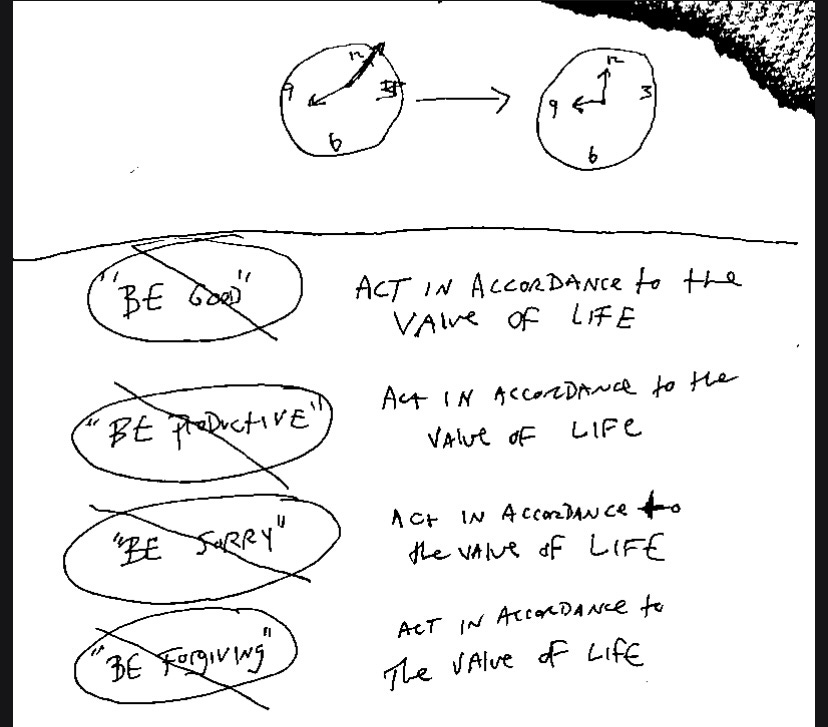 12
9
6
12
9
3
6
"BE GOOD"
ACT IN ACCORDANCE to the
VALUE OF LIFE
"BE PRODUCTIVE"
Act IN ACCORDANCE to the
VALUE OF LIFE
"BE SORRY"
ACt IN ACCORDANCE to
the VALUE of LIFE
"BE FORGIVING"
ACT IN ACCORDANCE to
The VALUE of LIFE